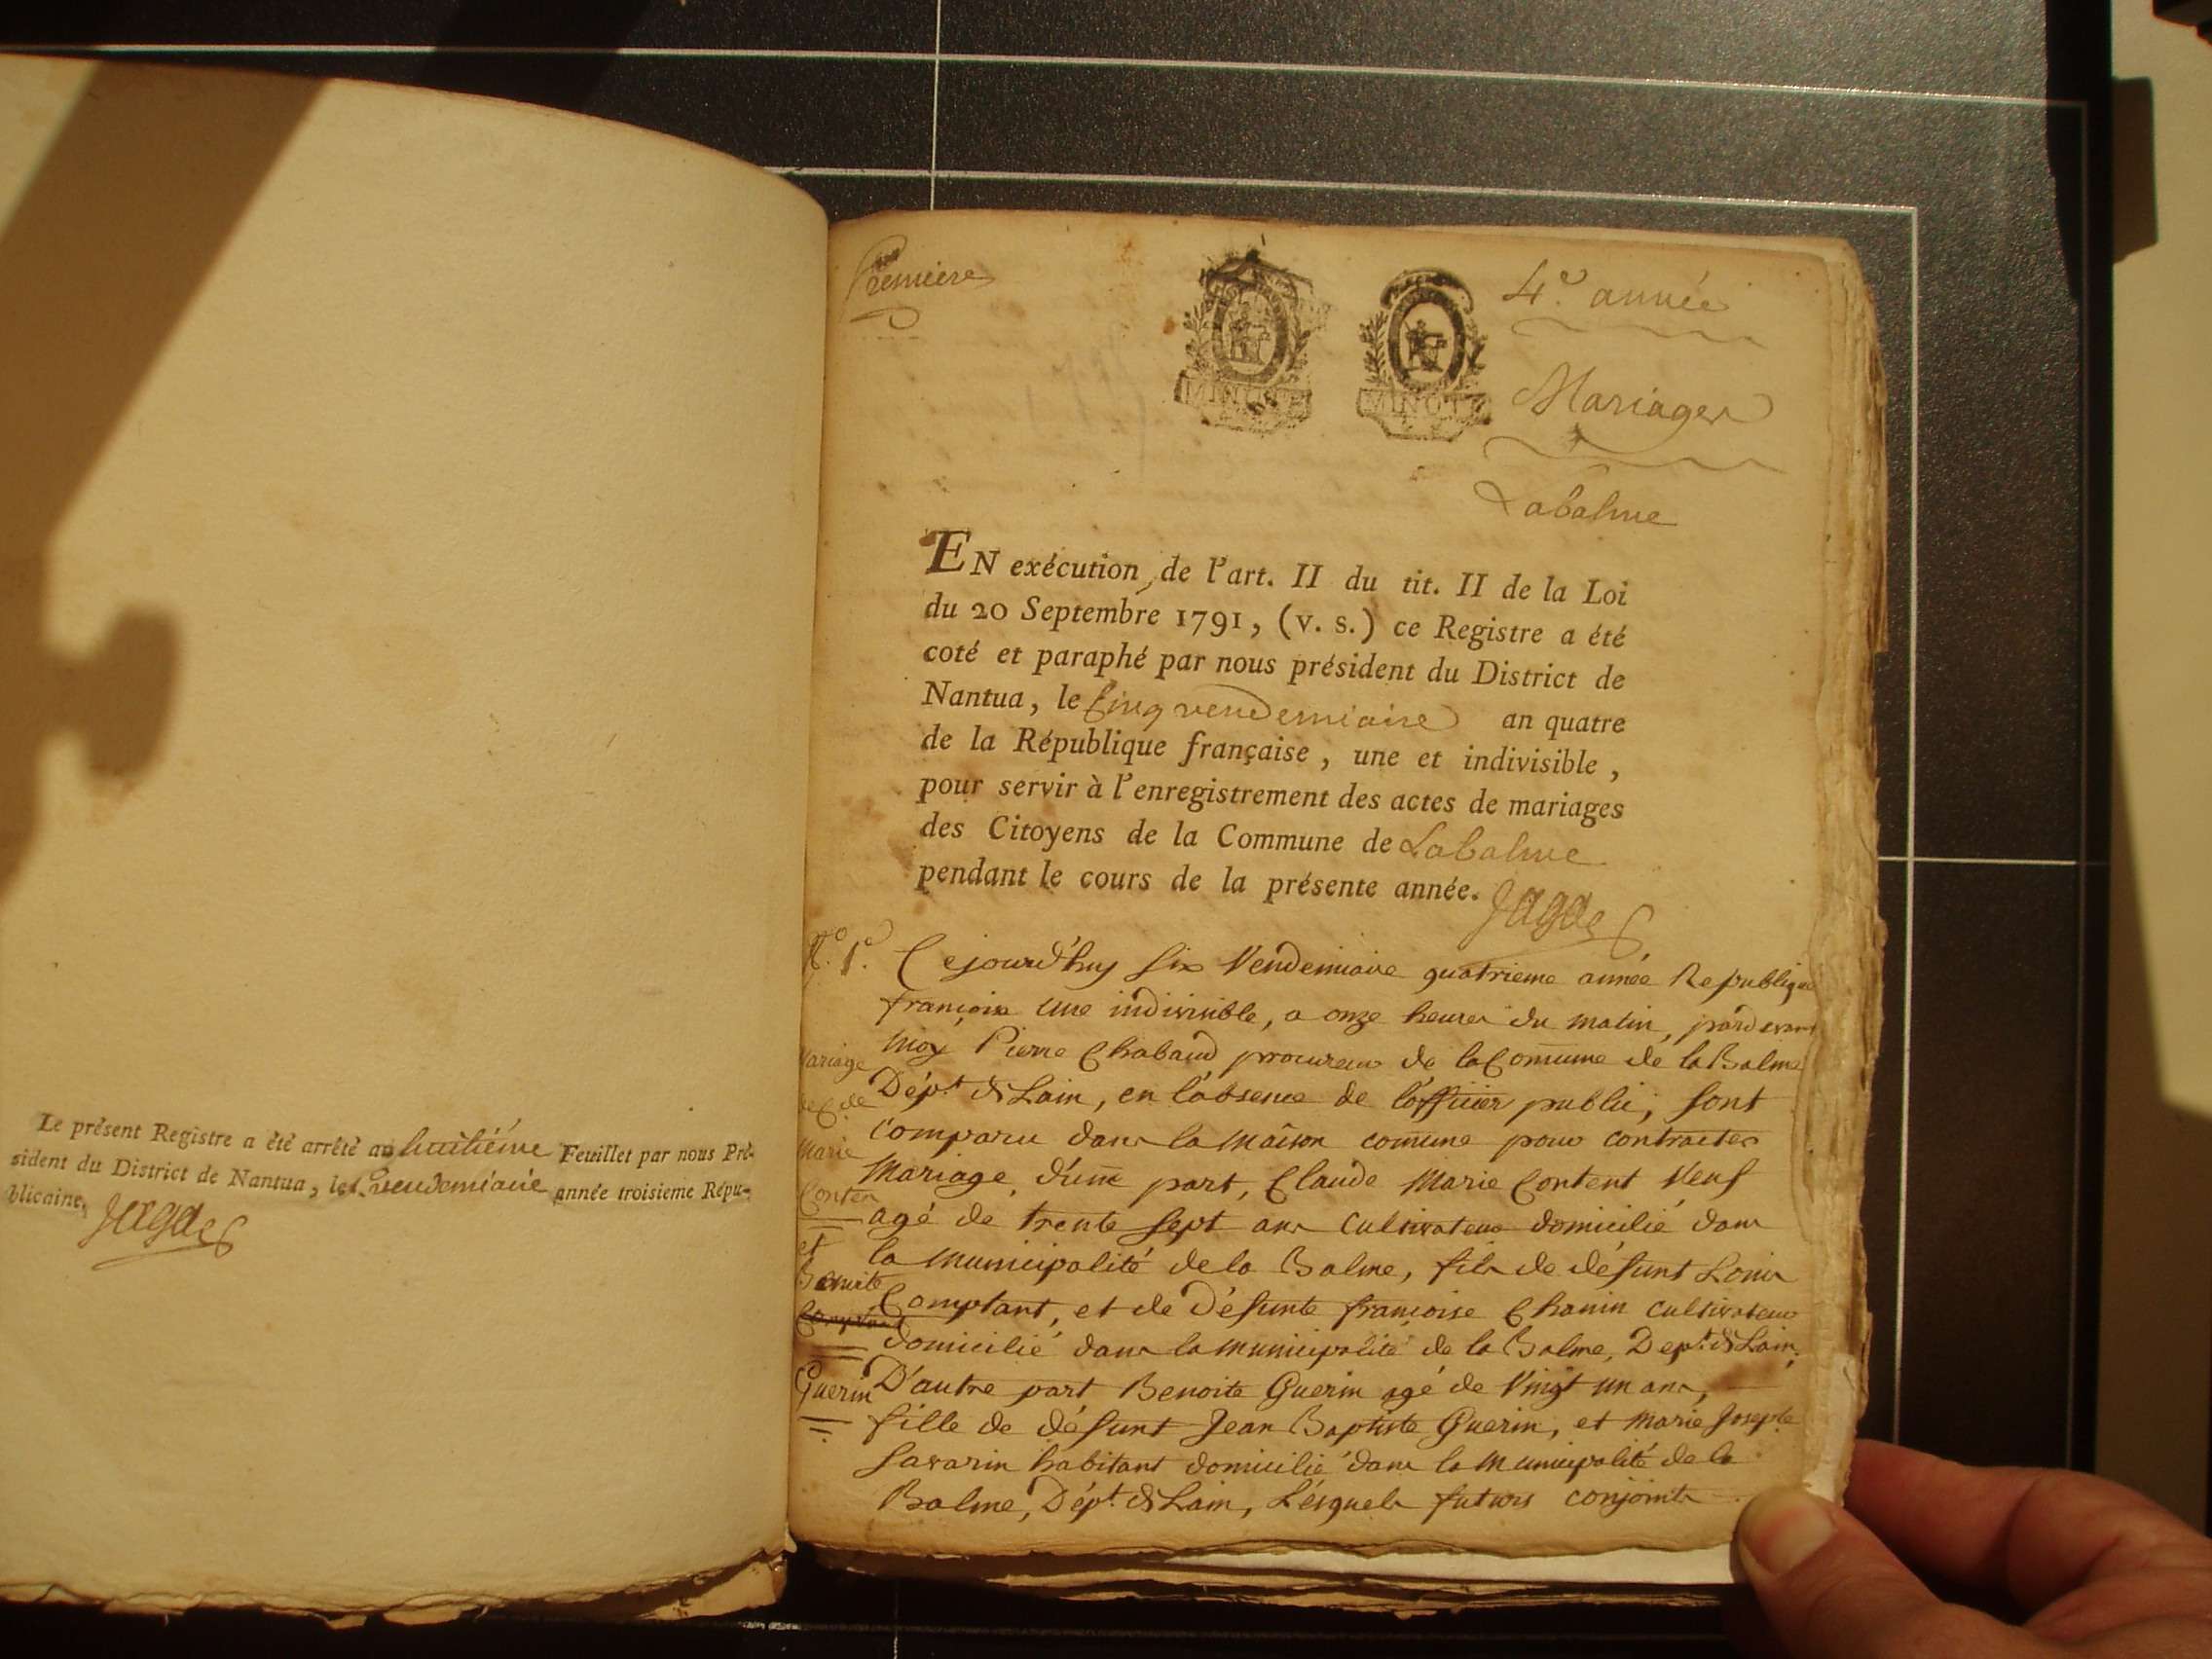 Le présent Registre a été arrêté au huitiéme Feuillet par nous Pré-
sident du District de Nantua, le vendemiaire année troisieme Répu-
blicaine.
Jagde
Premiere
MINUTE
MINUTE
4.e année
Mariages
Labalme
EN exécution de l'art. II du tit. II de la Loi
du 20 Septembre 1791, (v. s.) ce Registre a été
coté et paraphé par nous président du District de
Nantua, le Cinq vendemiaire an quatre
de la République française, une et indivisible,
pour servir à l'enregistrement des actes de mariages
des Citoyens de la Commune de Labalme
pendant le cours de la présente année.
Jagde
N.o 1.o
Cejourd'huy Six Vendemiaire quatrieme année Republique
françoise une indivisible, a onze heures du matin, pardevant
moy Pierre Chabaud procureur de la Comune de la Balme
Dép.t de Lain, en l'absence de l'officier public, sont
comparu dans la maison comune pour contracter
Mariage, d'une part, Claude Marie Content Veuf
agé de trente sept ans cultivateur domicilié dans
la municipalité de la Balme, fils de défunt Louis
Comptant, et de Défunte françoise Chanin cultivateur
domicilié dans la municipalité de la Balme, Dep.t de Lain,
D'autre part Benoite Guerin agé de Vingt un ans,
fille de défunt Jean Baptiste Guerin, et marie Josephe
Savarin habitant domicilié dans la municipalité de la
Balme, Dép.t de Lain, Lésquels futurs conjoints
Mariage
de C.de
Marie
Conten
et
Benoite
Guerin